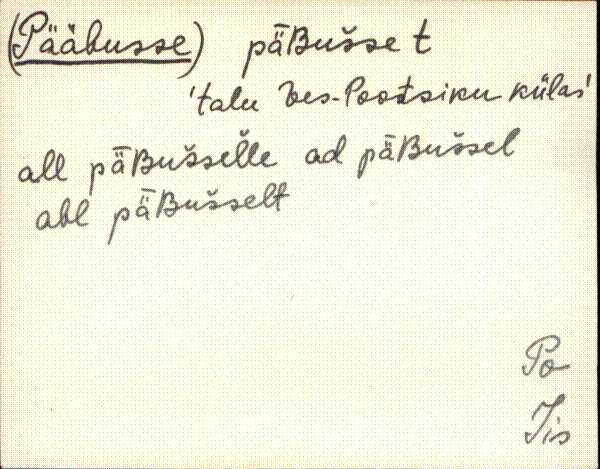 (Pääbusse) pǟBušše t
'talu Ves-Pootsiku külas'
all pǟBuššelle ad pǟBuššel
abl pǟBušselt
Po
Jis